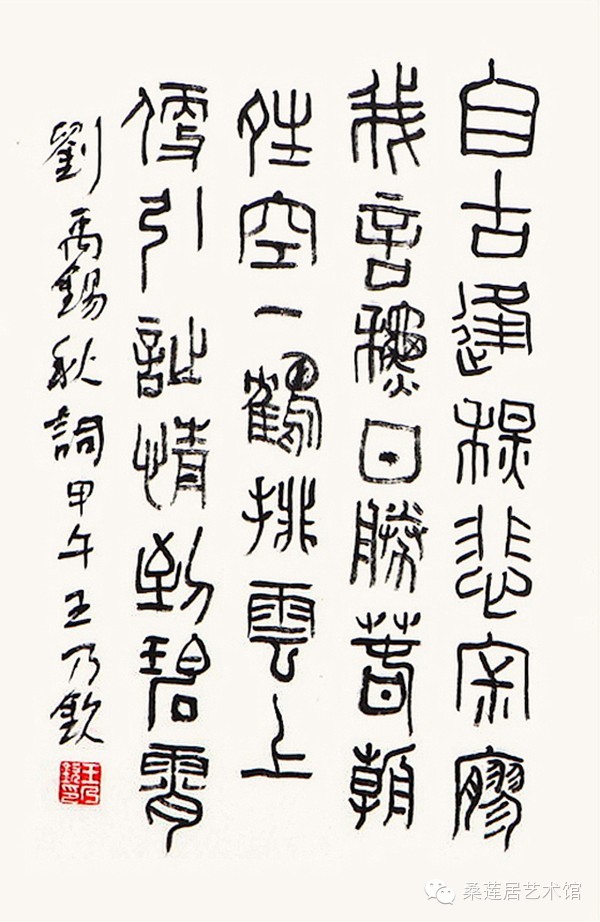 自古逢秋悲寂寥
我言秋日勝春朝
晴空一鶴排雲上
便引詩情到碧霄
劉禹錫秋詞甲午王乃欽
王乃欽印
桑莲居艺术馆